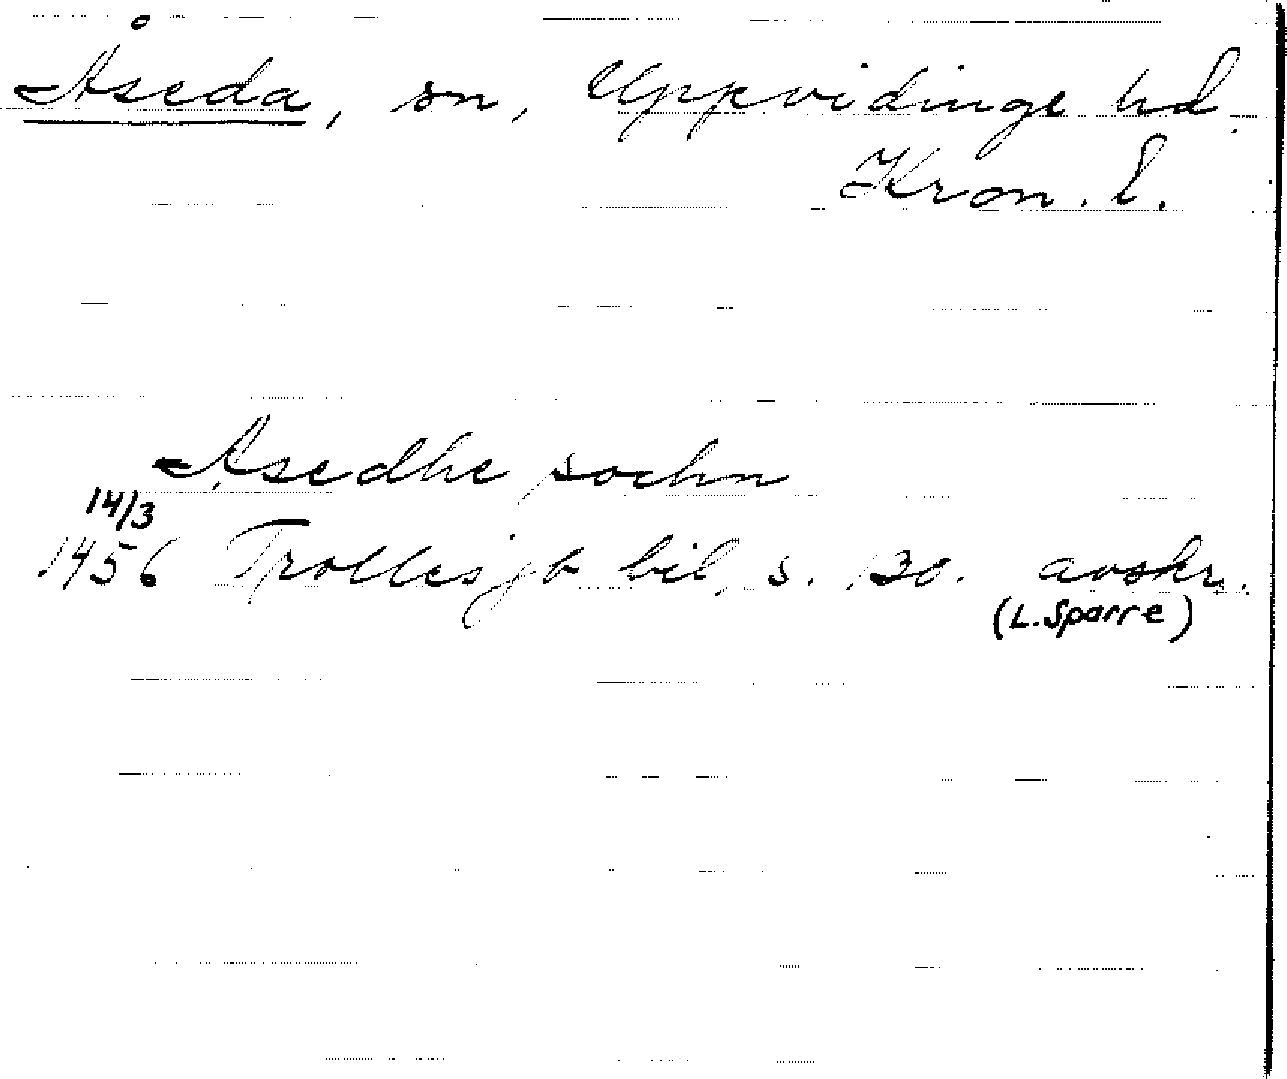 Åseda, sn, Uppvidinge hd.
Kron. l.
Asedhe sochn
14/3
1456 Trolles jb bil, s. 130. avskr.
(L. Sparre)